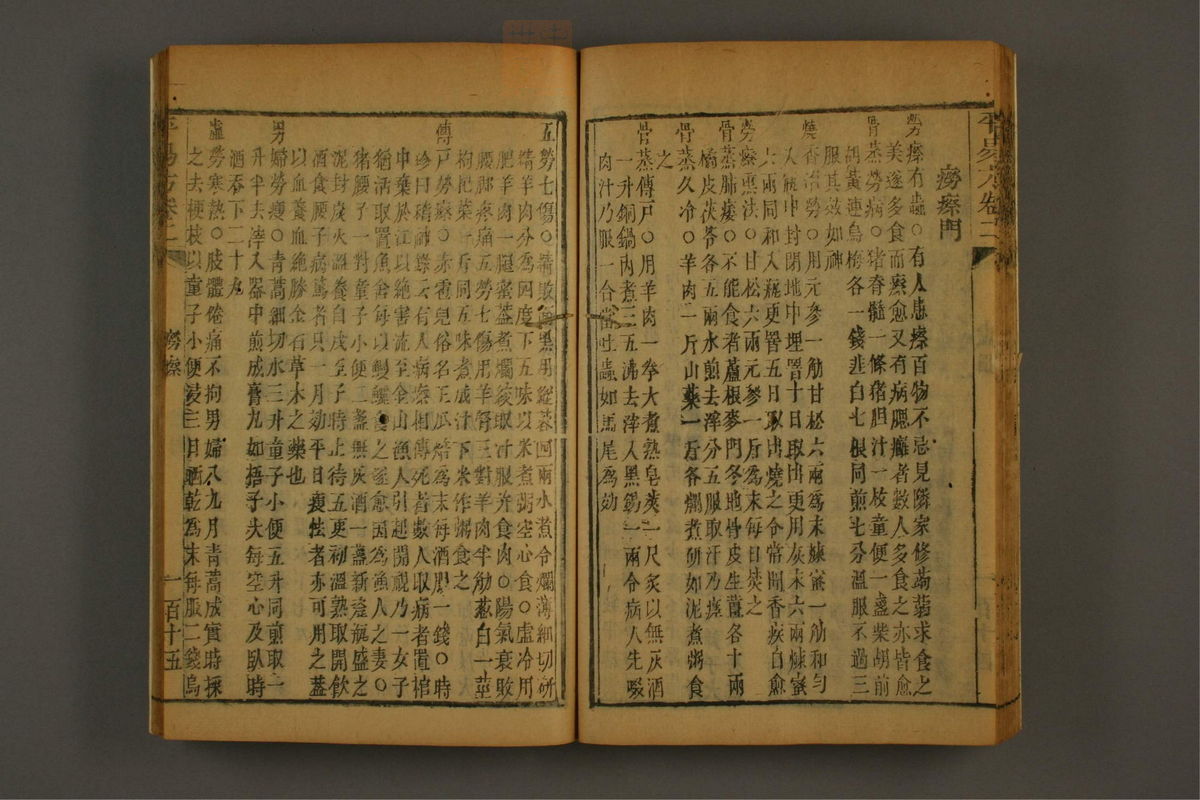 癆瘵門
勞瘵有蟲○有人患瘵百物不忌見隣家修蒟蒻求食之
美遂多食而瘵愈又有病腮癰者數人多食之亦皆愈
骨蒸勞病○猪脊髓一條猪胆汁一枚童便一盞柴胡前
胡黃連烏梅各一錢韭白七根同煎七分溫服不過三
服其效如神
燒香治勞○用元參一觔甘松六兩爲末煉蜜一觔和勻
入瓶中封閉地中埋窨十日取出更用灰末六兩煉蜜
六兩同和入瓶更窨五日取出燒之令常聞香疾自愈
勞瘵熏法○甘松六兩元參一斤爲末每日焚之
骨蒸肺痿○不能食者蘆根麥門冬地骨皮生薑各十兩
橘皮茯苓各五兩水煎去滓分五服取汗乃瘥
骨蒸久冷○羊肉一斤山藥一斤各爛煮研如泥煮粥食
之
骨蒸傳尸○用羊肉一拳大煮熟皂莢一尺炙以無灰酒
一升銅鍋內煮三五沸去滓入黑錫一兩令病人先啜
肉汁乃服一合當吐蟲如馬尾爲効
五勞七傷○精敗面黑用蓯蓉四兩水煮令爛薄細切研
精羊肉分爲四度下五味以米煮粥空心食○虛冷用
肥羊肉一腿蜜蓋煮爛後取汁服并食肉○陽氣衰敗
腰脚疼痛五勞七傷用羊腎三對羊肉半觔葱白一莖
枸杞葉一斤同五味煮成汁下米作粥食之
傳尸勞瘵○赤雹兒俗名王瓜焙爲末每酒服一錢○時
珍曰稽神錄云有人病瘵相傳死者數人取病者置棺
中棄於江以絕害流至金山漁人引起開視乃一女子
猶活取置魚舍每以鰻鱺食之遂愈因爲漁人之妻○
猪腰子一對童子小便二盞無灰酒一盞新瓷瓶盛之
泥封炭火溫養自戌至子時止待五更初溫熟取開飲
酒食腰子病篤者只一月効平日瘦怯者亦可用之蓋
以血養血絕勝金石草木之藥也
男婦勞瘦○青蒿細切水三升童子小便五升同煎取一
升半去滓入器中煎成膏丸如梧子大每空心及臥時
酒吞下二十丸
虛勞寒熱○肢體倦痛不拘男婦八九月青蒿成實時採
之去梗枝以童子小便浸三日晒乾爲末每服二錢烏
癆瘵
一百十五